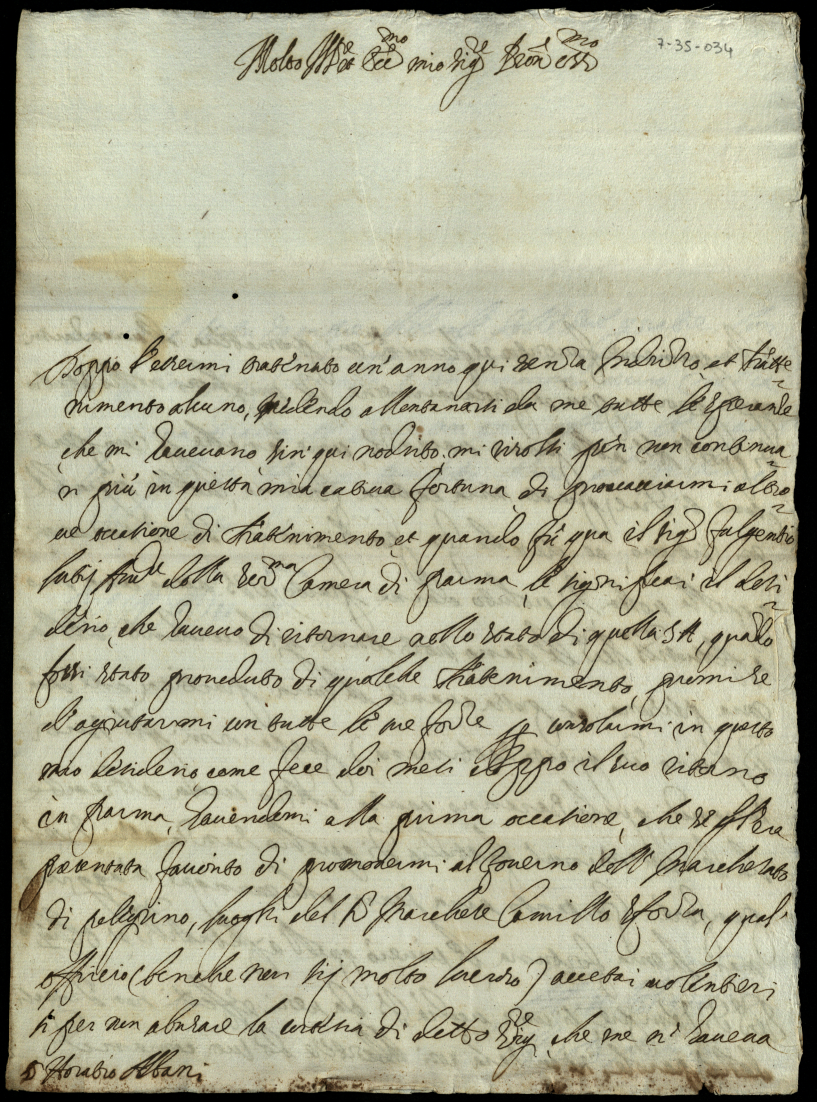 7-35-034
Molto Ill.re et Ecc.mo mio sig.re Pron Oss.mo
Doppo l'essermi tratenuto un'anno qui senza indrizzo, et tratte
nimento alcuno, vedendo allontanarsi da me tutte le speranze
che mi haueuano sin qui nodrito. mi risolsi per non continua
r più in questa mia catiua fortuna, di procacciarmi altro
ue occatione di tratenimento, et quando fù qua il sig.r fulgentio
della ser.ma Camera di Parma, le significai il desi
derio, che haueuo di ritornare nello stato di quella SA, quando
fossi stato proueduto di qualche tratenimento, promise
d'agiutarmi con tutte le sue forze p consolarmi in questo
mio desiderio, come fece doi mesi doppo il suo ritorno
in Parma, hauendomi alla prima occatione, che se gli era
presentata fauorito di promouermi al Gouerno dell' Marchesato
di pellegrino, luoghi del s.r Marchese Camillo sforza, qual'
officio (benche non sij molto lucroso) accetai uolentieri
si per non abusare la cortesia di detto sig.re, che me n' haueua
S Horatio Albani